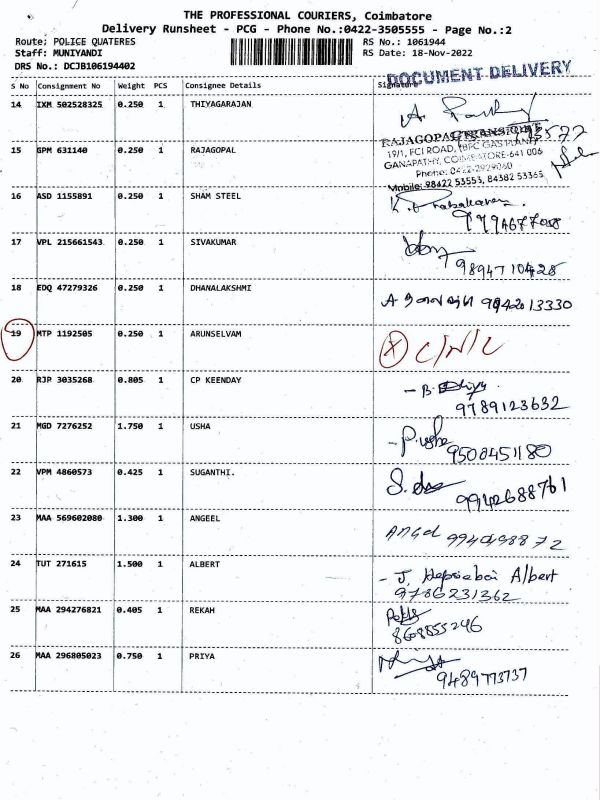 THE PROFESSIONAL COURIERS, Coimbatore
Delivery Runsheet - PCG - Phone No.:0422-3505555 - Page No.:2
Route: POLICE QUATERES RS No.: 1061944
Staff: MUNIYANDI RS Date: 18-Nov-2022
DRS No.: DCJB106194402
DOCUMENT DELIVERY
S No Consignment No Weight PCS Consignee Details Signature
14 IXM 502528325 0.250 1 THIYAGARAJAN
RAJAGOPAL
19/1, FCI ROAD,
GANAPATHY, COIMBATORE-641 006
Phone: 0422-2929060
Mobile: 98422 53553, 84382 53365
15 GPM 631140 0.250 1 RAJAGOPAL
16 ASD 1155891 0.250 1 SHAM STEEL
17 VPL 215661543 0.250 1 SIVAKUMAR
9894710428
18 EDQ 47279326 0.250 1 DHANALAKSHMI
9842013330
19 MTP 1192505 0.250 1 ARUNSELVAM X C/N/L
20 RJP 3035268 0.805 1 CP KEENDAY
9789123632
21 MGD 7276252 1.750 1 USHA - P. usha
9508451180
22 VPM 4860573 0.425 1 SUGANTHI.
9942688761
23 MAA 569602080 1.300 1 ANGEEL Angel
24 TUT 271615 1.500 1 ALBERT - J. Hepsiebai Albert
9786231362
25 MAA 294276821 0.405 1 REKAH
868855246
26 MAA 296805023 0.750 1 PRIYA
9489773737